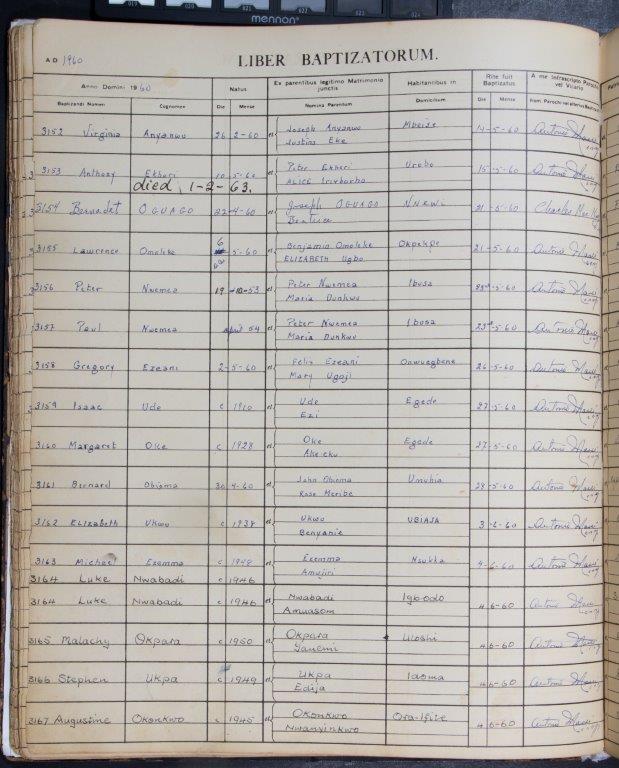 mennon
A D 1960
LIBER BAPTIZATORUM.
Anno Domini 1960 Natus Ex parentibus legitimo Matrimonio junctis Habitantibus in Rite fuit Baptizatus A me infrascripto Parocho vel Vicario
Baptizandi Nomen Cognomen Die Mense Nomina Parentum Domicilium Die Mense
3152 Virginia Anyanwu 26 2-60 et Joseph Anyanwu Mbeise 14-5-60
Justina Eke
3153 Anthony Ekheri 10 5-60 et Peter Ekheri Urobo 15-5-60
died 1-2-63. ALICE
3154 Bernadet OGUAGO 22 4-60 et Joseph OGUAGO NNEWI 21-5-60 Charles
Beatrice
3155 Lawrence Omoleke 6 5-60 et Benjamin Omoleke Okpekpe 21-5-60
ELIZABETH Ugbo
3156 Peter Nwemea 19 -10-53 et Peter Nwemea Ibusa 23rd-5-60
Maria Dunkwu
3157 Paul Nwemea April 54 et Peter Nwemea Ibusa 23rd-5-60
Maria Dunkwu
3158 Gregory Ezeani 2-5-60 et Felix Ezeani 26-5-60
Mary Ugoji
3159 Isaac Ude c 1910 et Ude Egede 27-5-60
Ezi
3160 Margaret Oke c 1928 et Oke Egede 27-5-60
3161 Bernard Obioma 30 4-60 et John Obioma Umuhia 28-5-60
Rose Meribe
3162 Elizabeth Ukwu c 1938 et Ukwu UBIAJA 3-6-60
Benyanie
3163 Michael Ezemma c 1948 et Ezemma Nsukka 4-6-60
Amujiri
3164 Luke Nwabadi c 1946
3164 Luke Nwabadi c 1946 et Nwabadi Igbodo 4 6-60
Amuasom
3165 Malachy Okpara c 1950 et Okpara Uloshi 4 6-60
3166 Stephen Ukpa c 1949 et Ukpa 4 6-60
Edija
3167 Augustine Okonkwo c 1945 et Okonkwo Ora-Ifite 4 6-60
Nwanyinkwo